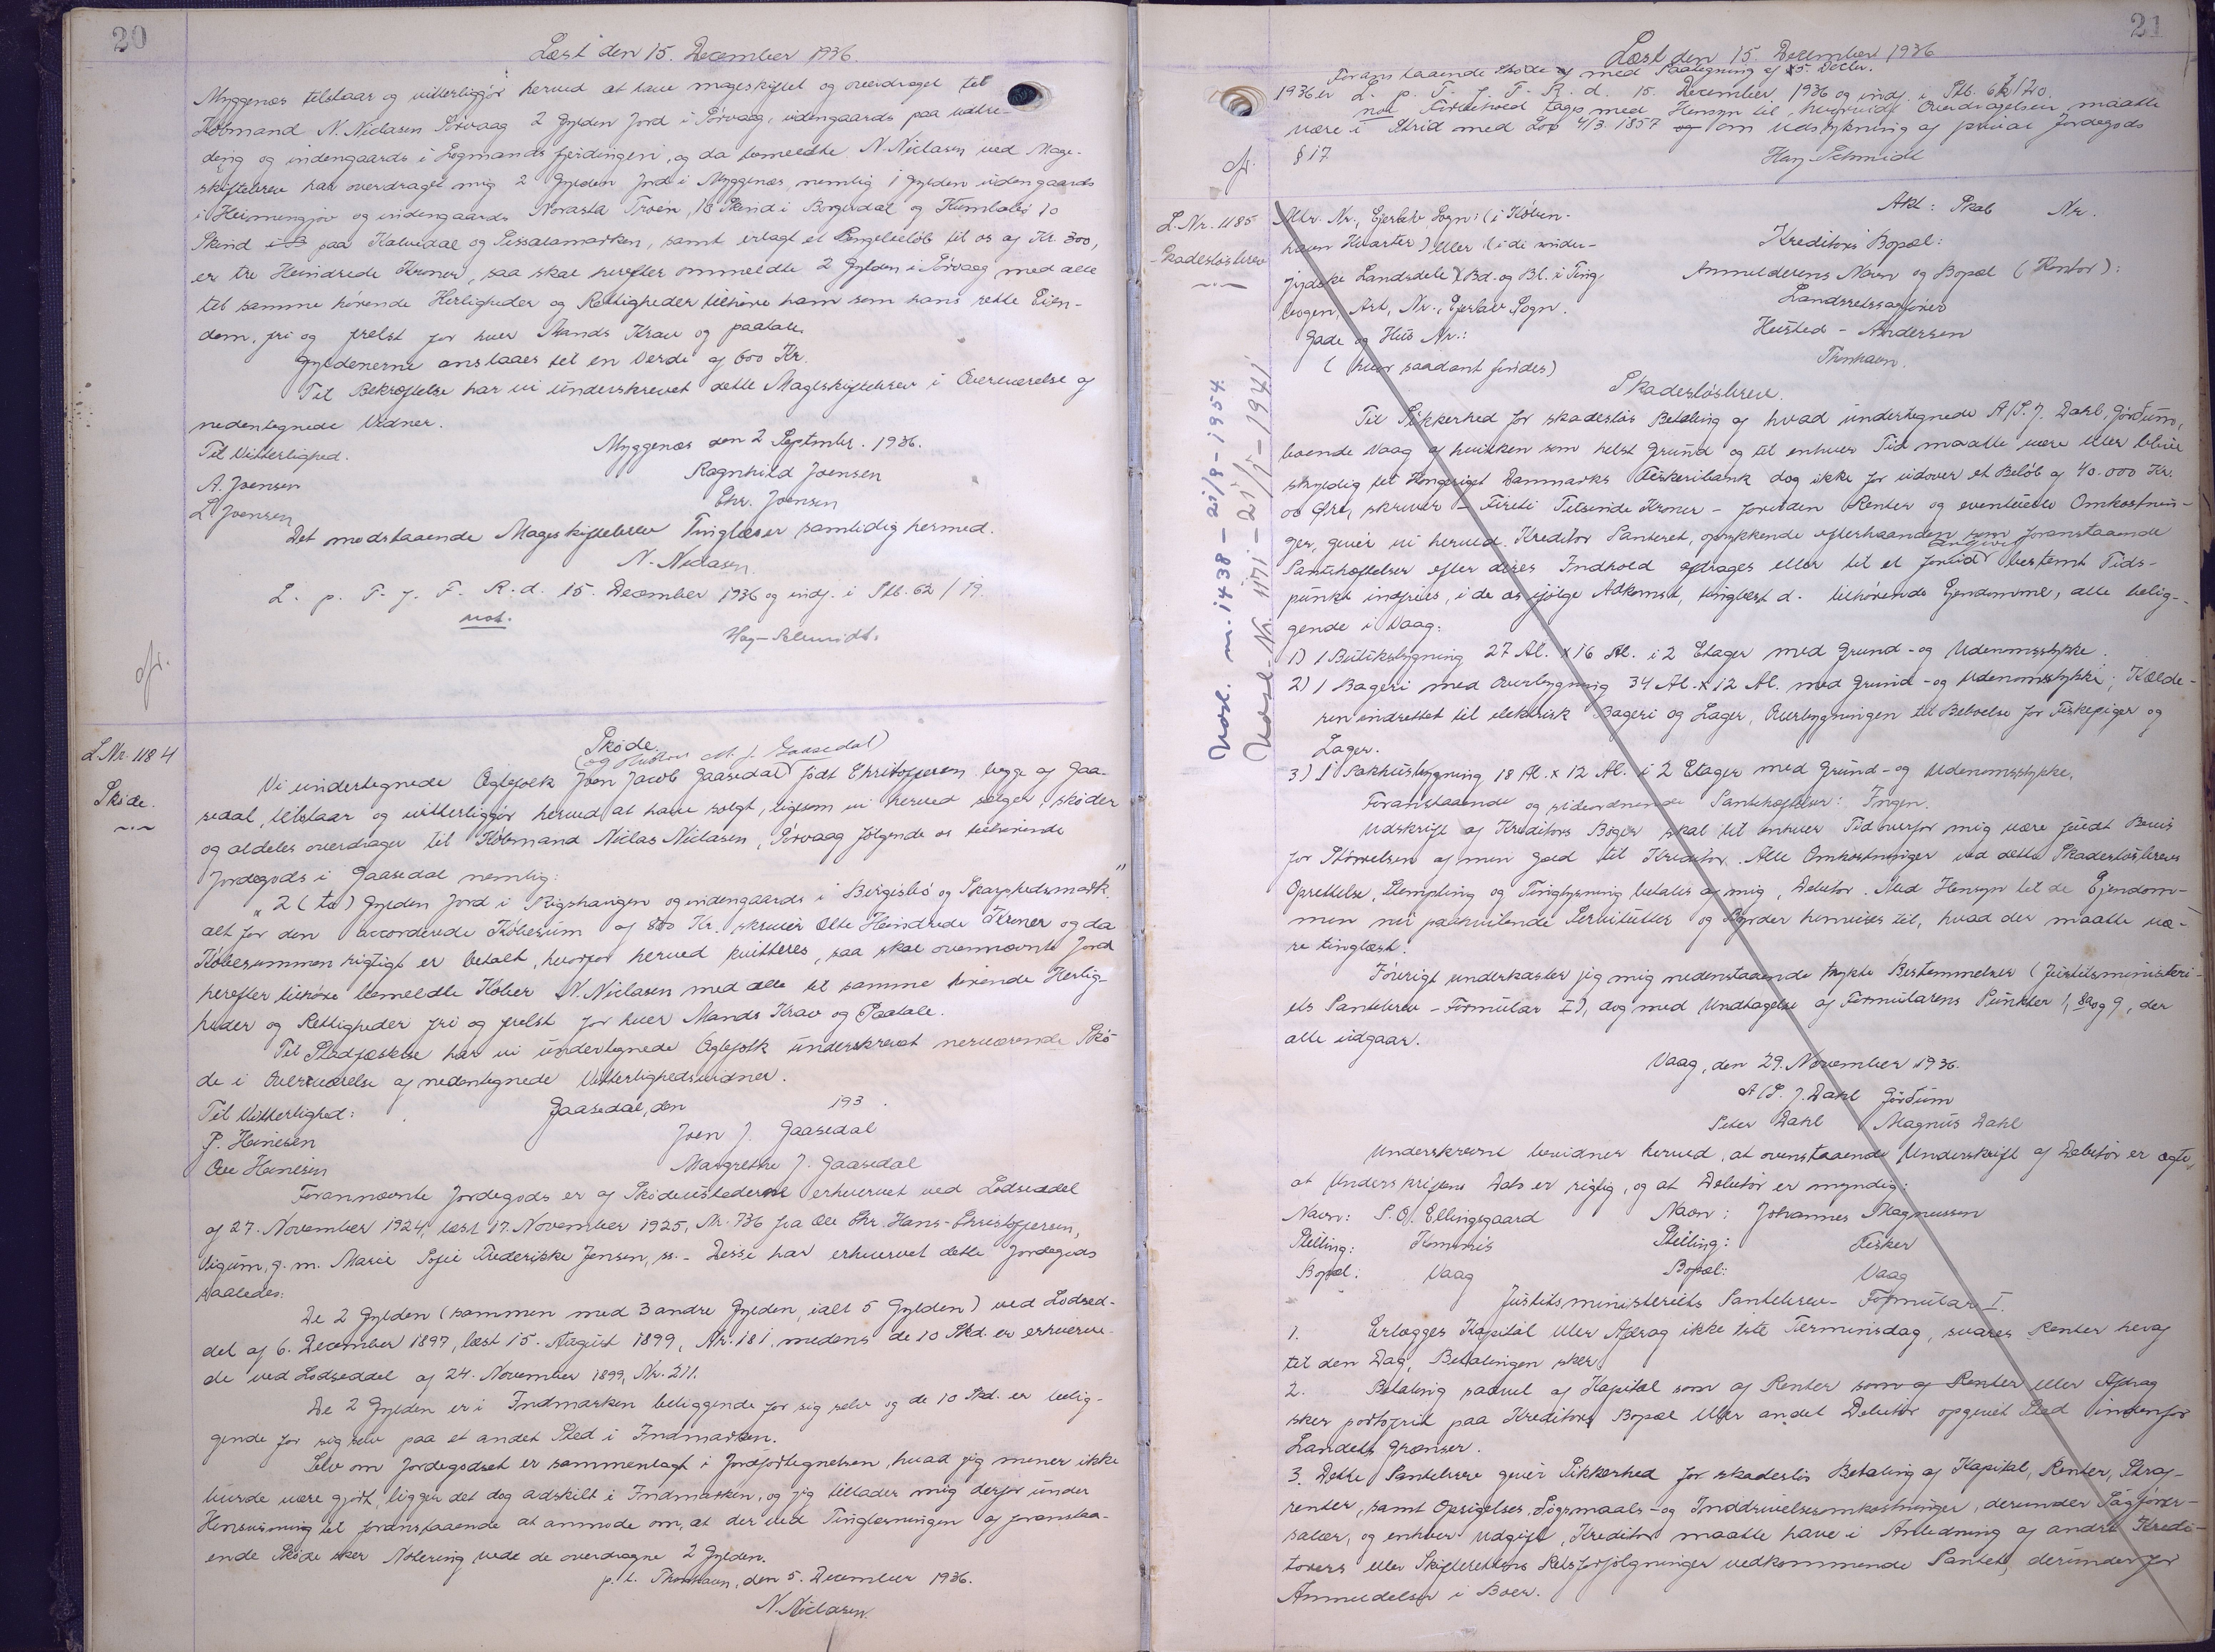 20
Læst den 15. December 1936.
Myggenæs tilstaar og vitterliggjør herved at have mageskiftet og overdraget til
Købmand N. Niclasen Sørvaag 2 Gylden Jord i Sørvaag, udengaards paa
og indengaards i Logmandsfjerdingen, og da bemeldte N. Niclasen ved Mage-
skiftebrev har overdraget mig 2 Gylden Jord i Myggenæs, nemlig 1 Gylden udengaards
i Heimengjov og indengaards Norasta Troen, 13 Skind i Borgardal og 10
Skind paa Kalvedal og, samt erlagt et Pengebeløb til os af Kr. 300,
er tre Hundrede Kroner, saa skal herefter ommeldte 2 Gylden i Sørvaag med alle
til samme hørende Herligheder og Rettigheder tilhøre ham som hans rette Eien-
dom, fri og frelst for hver Mands Krav og paatale.
Gyldenerne anslaaes til en Værdi af 600 Kr.
Til Bekræftelse har vi underskrevet dette Mageskiftebrev i Overværelse af
nedentegnede Vidner.
Til Vitterlighed.
Myggenæs den 2 Septmbr. 1936.
A. Joensen
Ragnhild Joensen
L Joensen
Chr. Joensen
Det modstaaende Mageskiftebrev Tinglæses samtidig hermed.
N. Niclasen.
L. p. T. f. F. R. d. 15. December 1936 og indf. i Skb. 62/19.
not.
Hay-Schmidt.
cfr.
L.Nr. 1184
Skøde.
Skøde.
(og Hustru M. J. Gaasedal)
Vi undertegnede Ægtefolk Joen Jacob Gaasedal født Christoffersen begge af Gaa-
sedal, tilstaar og vitterliggjør herved at have solgt, ligesom vi herved sælger, skøder
og aldeles overdrager til Købmand Niclas Niclasen, Sørvaag følgende os tilhørende
Jordegods i Gaasedal nemlig:
"2 (to) Gylden Jord i Rigshaugen og indengaards i Birgisbø og Skarphedsmark"
alt for den accorderede Købesum af 800 Kr. skriver Otte Hundrede Kroner og da
Købesummen rigtigt er betalt, hvorfor herved kvitteres, saa skal ovennævnte Jord
herefter tilhøre bemeldte Køber N. Niclasen med alle til samme hørende Herlig-
heder og Rettigheder fri og frelst for hver Mands Krav og Paatale.
Til Stadfæstelse har vi undertegnede Ægtefolk underskrevet nerværende Skø-
de i Overværelse af nedentegnede Vitterlighedsvidner.
Til Vitterlighed:
Gaasedal, den 193 .
P. Heinesen
Joen J. Gaasedal
Ove Heinesen
Margrethe J. Gaasedal
Forannævnte Jordegods er af Skødeudstederne erhvervet ved Lodseddel
af 27. November 1924, læst 17. November 1925, Nr. 736 fra Ole Chr. Hans-Christoffersen,
Vigum, g. m. Marie Sofie Frederikke Jensen, ss. - Disse har erhvervet dette Jordegods
saaledes:
De 2 Gylden (sammen med 3 andre Gylden, ialt 5 Gylden) ved Lodsed-
del af 6. December 1897, læst 15. August 1899, Nr. 181, medens de 10 Skd. er erhverve-
de ved Lodseddel af 24. November 1899, Nr. 211.
De 2 Gylden er i Indmarken beliggende for sig selv og de 10 Skd. er belig-
gende for sig selv paa et andet Sted i Indmarken.
Selv om Jordegodset er sammenlagt i Jordfortegnelsen, hvad jeg mener ikke
burde være gjort, ligger det dog adskilt i Indmarken, og jeg tillader mig derfor under
Henvisning til foranstaaende at anmode om, at der ved Tinglæsningen af foranstaa-
ende Skøde sker Notering vedr. de overdragne 2 Gylden.
p. t. Thorshavn, den 5. December 1936.
N. Niclasen.
21
Læst den 15. December 1936
Foranstaaende Skøde af med Paategning af 5. Decbr.
1936 er L. p. T. f. F. R. d. 15. December 1936 og indf. i Skb. 62/20.
not Forbehold tages med Hensyn til, hvorvidt Overdragelsen maatte
være i Strid med Lov 4/3 1857 og om Udstykning af privat Jordegods
§ 17
Hay-Schmidt
cfr.
L.Nr. 1185
Skadesløsbrev
Mtr. Nr., Ejerlav Sogn: (i Køben-
havn Kvarter) eller (i de sønder-
jydske Landsdele) Bd. og Bl. i Ting-
bogen, Art. Nr., Ejerlav Sogn.
Gade og Hus Nr.:
(hvor saadant findes)
Akt: Skab Nr.
Kreditors Bopæl:
Anmelderens Navn og Bopæl (Kontor):
Landsretssagfører
Husted-Andersen
Thorshavn.
Vasl. nr. 1438 – 21/9 – 1954.
Nr. 1171 – 21/5 – 1941
Skadesløsbrev.
Til Sikkerhed for skadesløs Betaling af hvad undertegnede A/S. J. Dahl, Jördum,
boende Vaag af hvilken som helst Grund og til enhver Tid maatte være eller blive
skyldig til Kongeriget Danmarks Fiskeribank dog ikke for udover et Beløb af 40.000 Kr.
00 Øre, skriver – Fireti Tusinde Kroner – foruden Renter og eventuelle Omkostnin-
ger, giver vi herved Kreditor Panteret, oprykkende efterhaanden som foranstaaende
Pantehæftelser efter deres Indhold afdrages eller til et forud bestemt Tids-
punkt indfries, i de os ifølge Adkomst, tinglæst d. tilhørende Ejendomme, alle belig-
gende i Vaag:
1) 1 Butiksbygning 27 Al. x 16 Al. i 2 Etager med Grund- og Udenomsstykke.
2) 1 Bageri med Overbygning 34 Al. x 12 Al. med Grund- og Udenomsstykke; Kælde-
ren indrettet til elektrisk Bageri og Lager, Overbygningen til Beboelse for Fiskepiger og
Lager.
3) 1 Pakhusbygning 18 Al. x 12 Al. i 2 Etager med Grund- og Udenomsstykke.
Foranstaaende og sideordnende Pantehæftelser: Ingen.
Udskrift af Kreditors Bøger skal til enhver Tid overfor mig være fuldt Bevis
for Størrelsen af min Gæld til Kreditor. Alle Omkostninger ved dette Skadesløsbrevs
Oprettelse, Stempling og Tinglysning betales af mig, Debitor. Med Hensyn til de Ejendom-
men nu paahvilende Servitutter og Byrder henvises til, hvad der maatte væ-
re tinglæst.
Iøvrigt underkaster jeg mig nedenstaaende trykte Bestemmelser (Justitsministeri-
ets Pantebrev – Formular I), dog med Undtagelse af Formularens Punkter 1, 8a og 9, der
alle udgaar.
Vaag, den 29. November 1936.
A/S. J. Dahl Jördum
Peter Dahl Magnus Dahl
Underskrevne bevidner herved, at ovenstaaende Underskrift af Debitor er ægte,
at Underskriftens Dato er rigtig, og at Debitor er myndig:
Navn: S. O. Ellingsgaard Navn: Johannes Magnussen
Stilling: Kommis Stilling: Fisker
Bopæl: Vaag Bopæl: Vaag
Justitsministeriets Pantebrev – Formular I.
1. Erlægges Kapital eller Afdrag ikke 1ste Terminsdag, svares Renter heraf
til den Dag, Betalingen sker.
2. Betaling saavel af Kapital som af Renter som af Renter eller Afdrag
sker portofrit paa Kreditors Bopæl eller andet Debitor opgivet Sted indenfor
Landets Grænser.
3. Dette Pantebrev giver Sikkerhed for skadesløs Betaling af Kapital, Renter, Straf-
renter, samt Opsigelses, Søgsmaals- og Inddrivelsesomkostninger, derunder Sagfører-
salær, og enhver Udgift, Kreditor maatte have i Anledning af andre Kredi-
torers eller Skifterettens Retsforfølgninger vedkommende Pantet, derunder for
Anmeldelser i Boer.